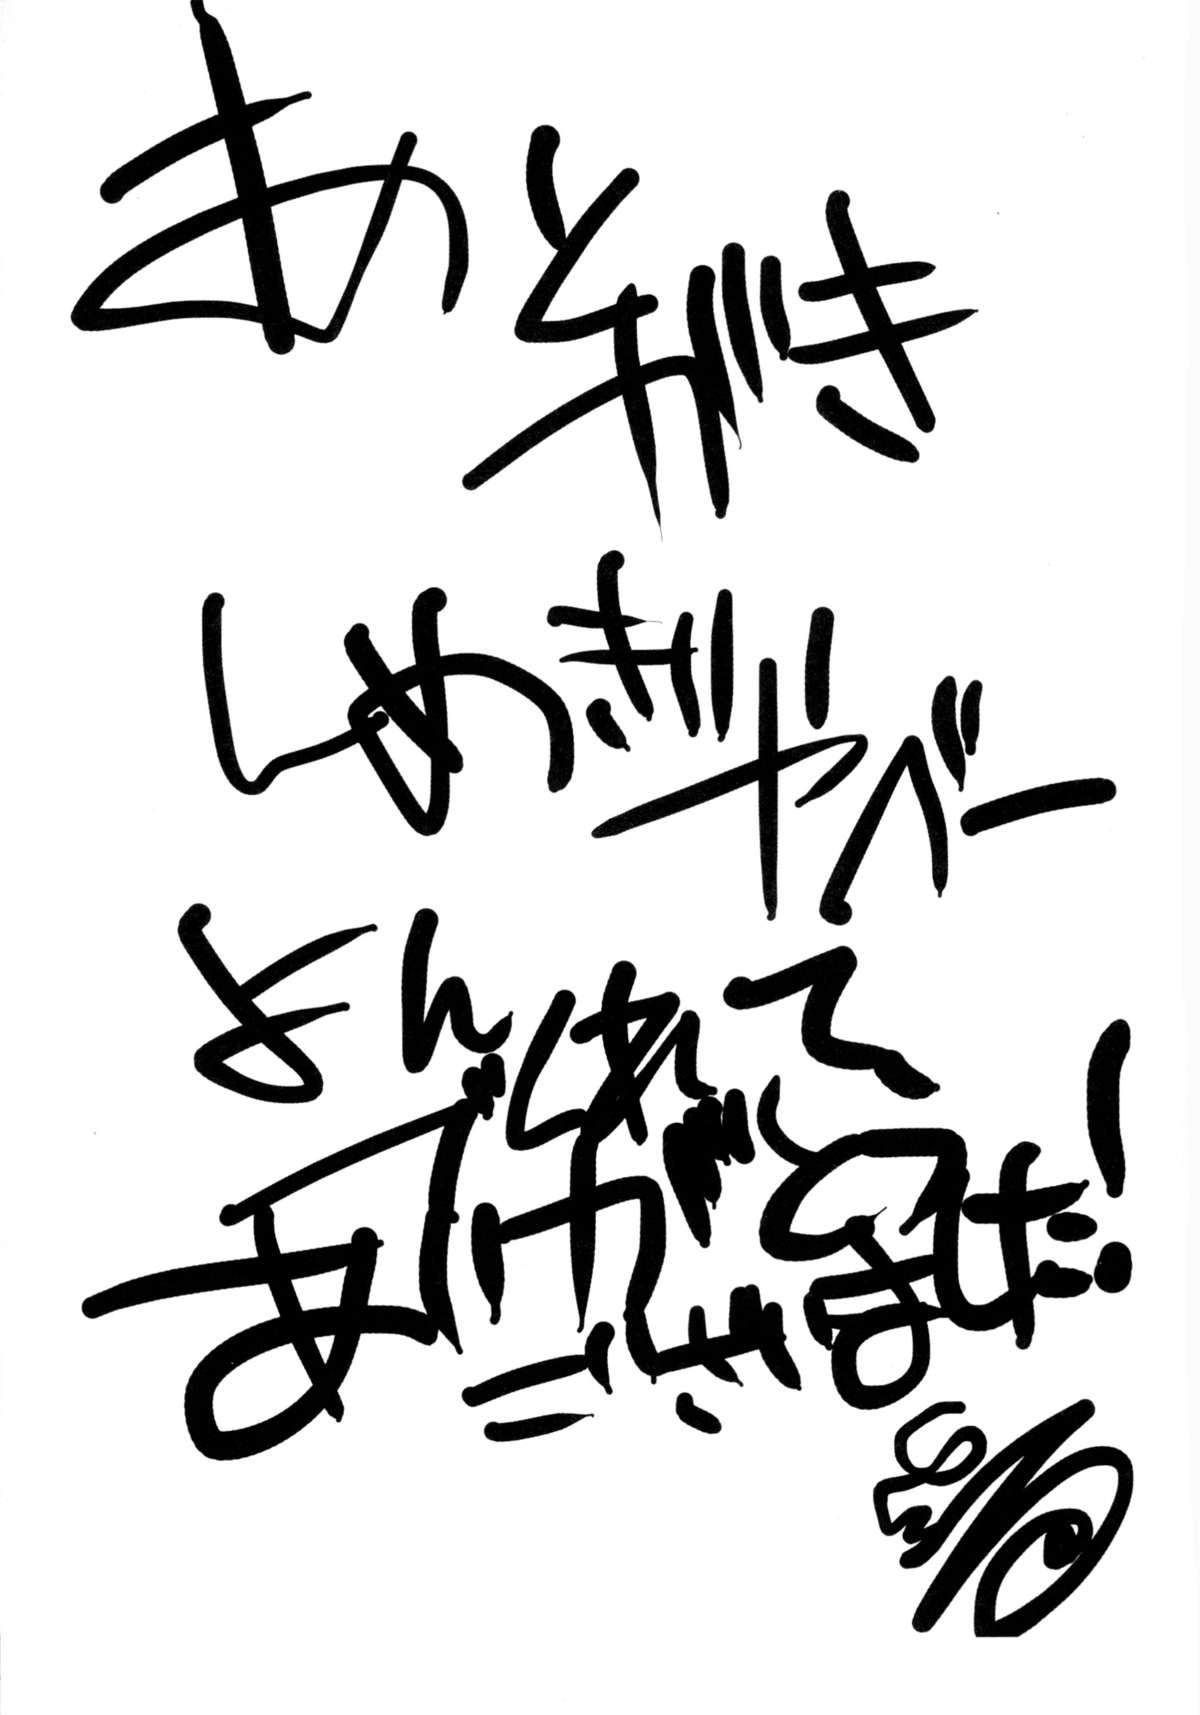 あとがき
しめぎりヤベー
よんでくれて
ありがとう
ございました!